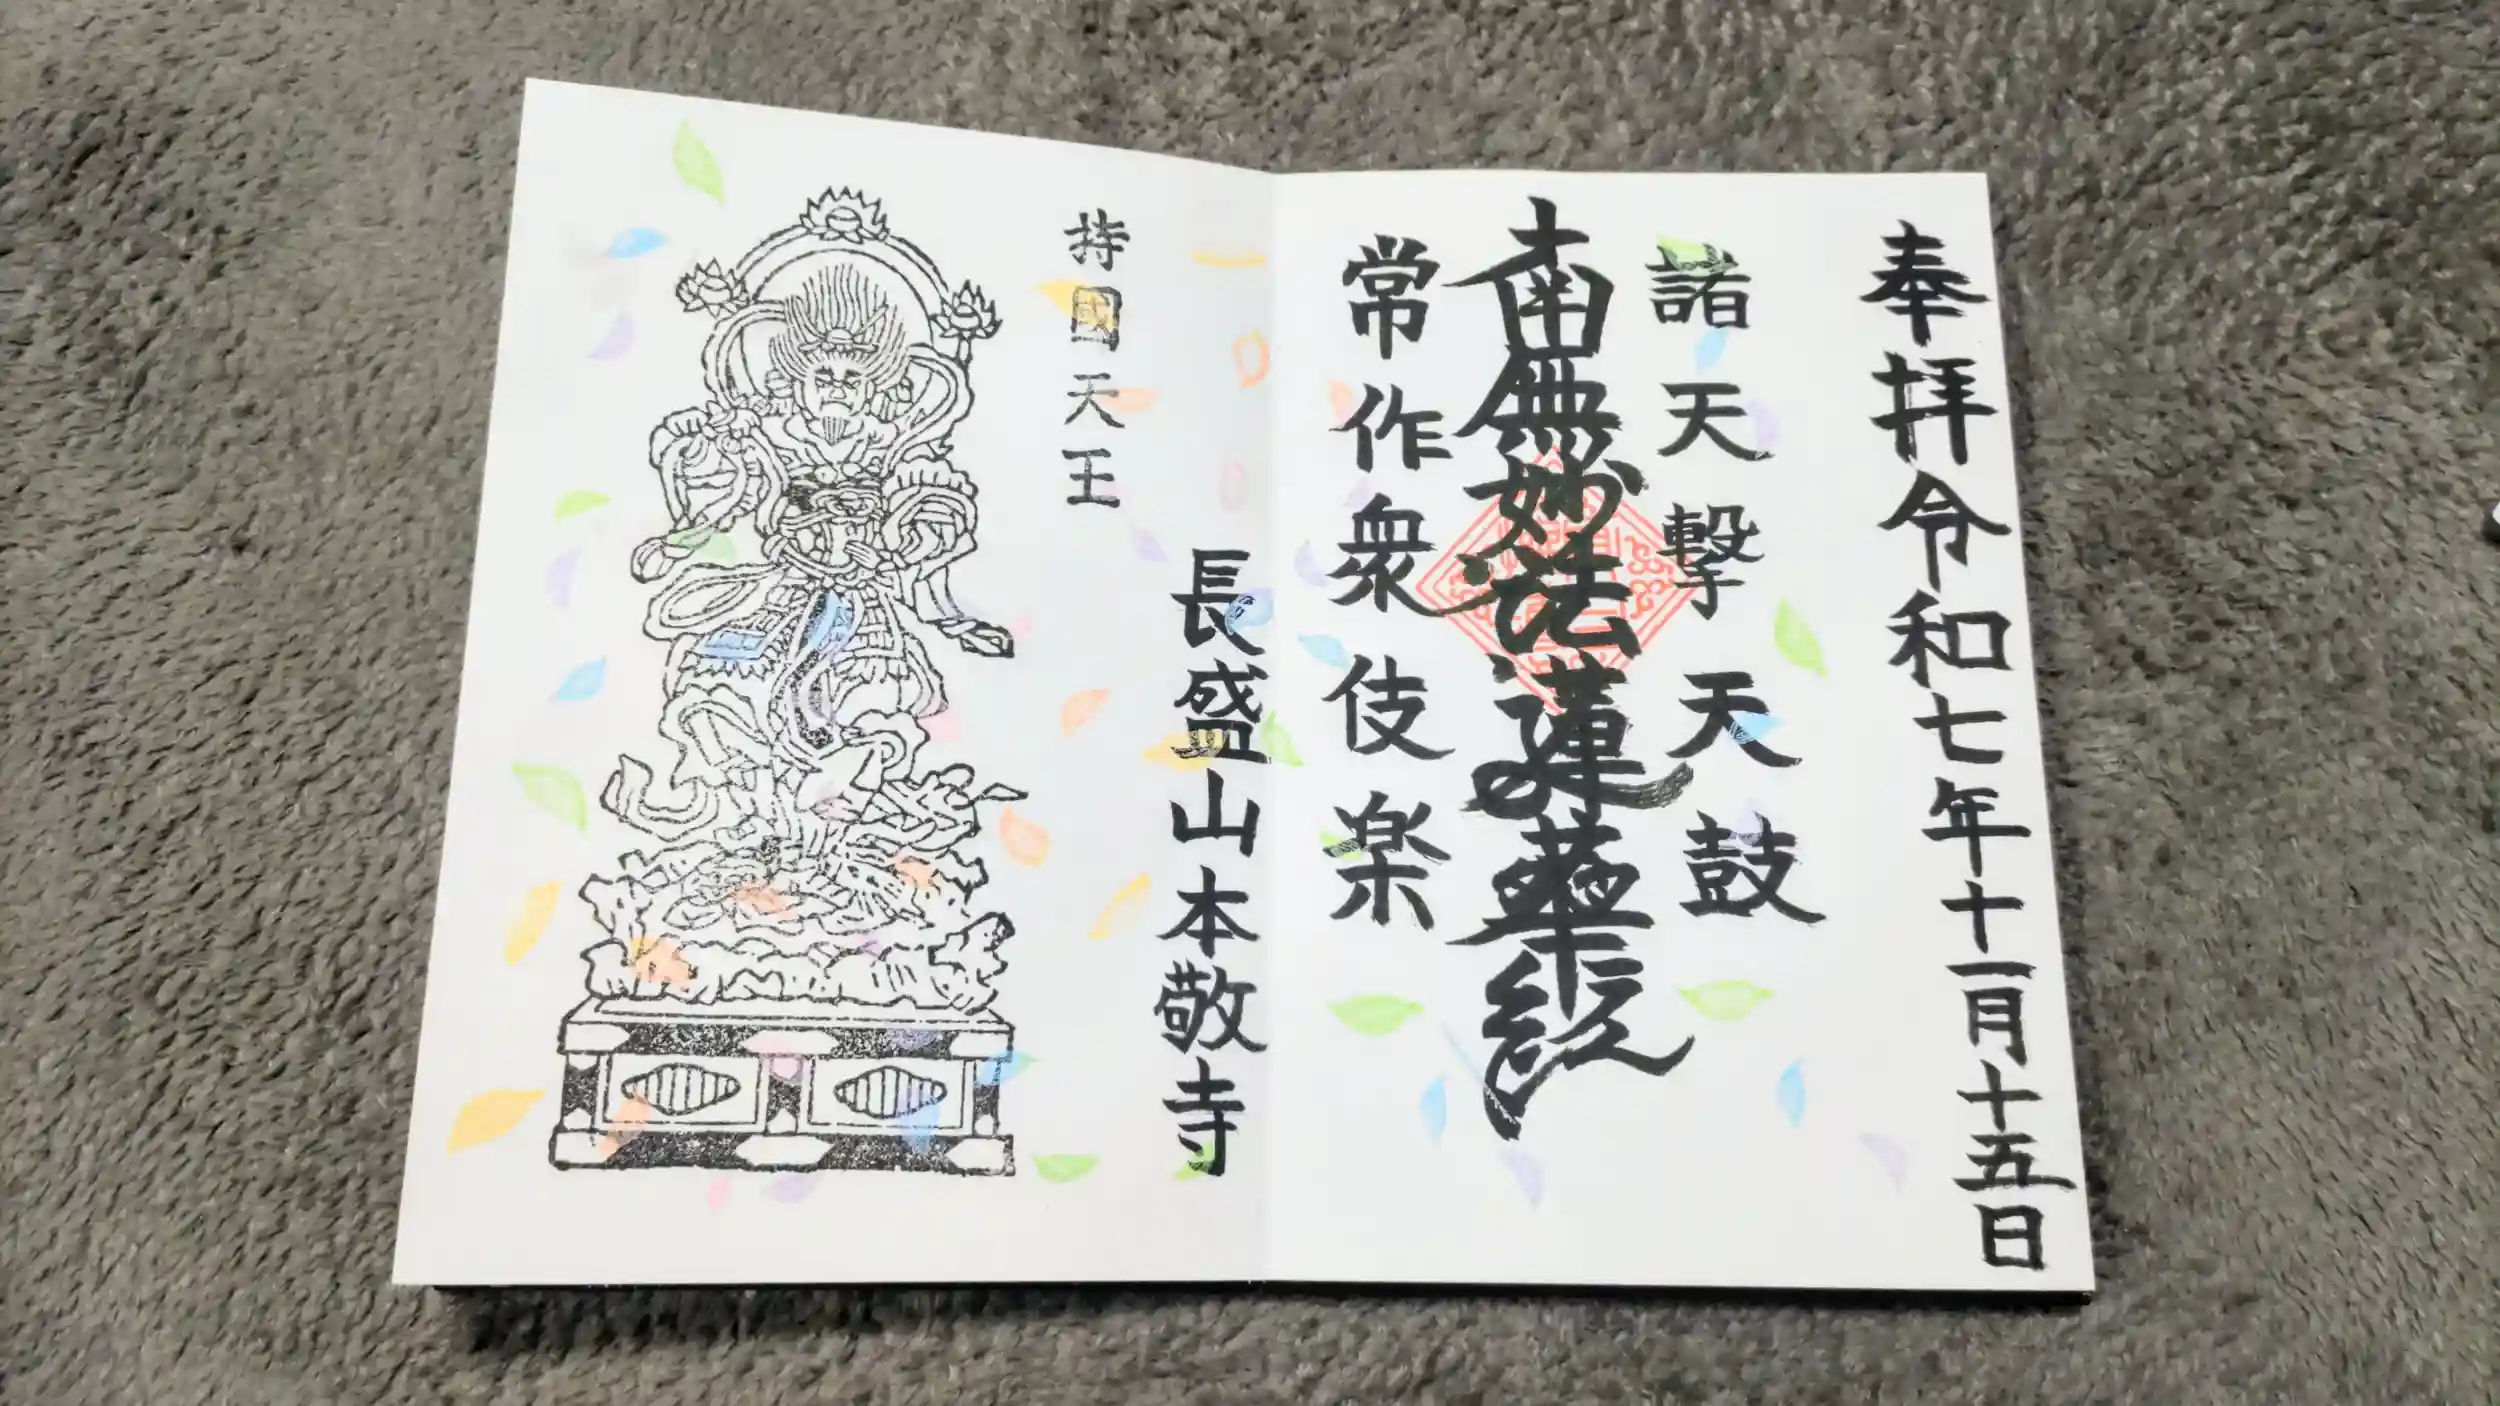 奉拝令和七年十一月十五日
諸天撃天鼓
南無妙法蓮華経
常作衆伎楽
長盛山本敬寺
持國天王